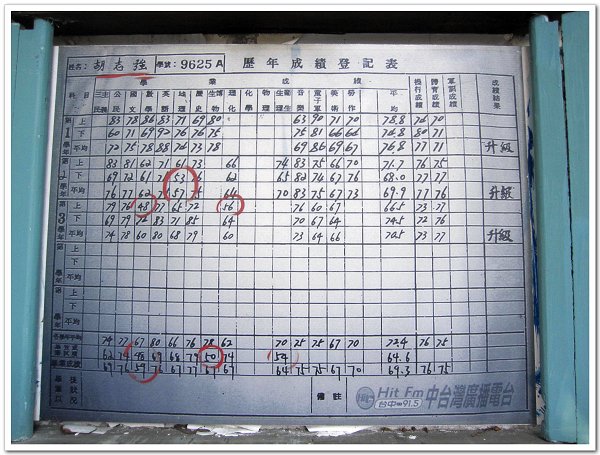 姓名: 胡志強 學號: 9625A 歷年成績登記表
學業成績
科目 三民主義 公民 國文 數學 英語 地理 歷史 博物 生物 理化 化學 物理 生理衛生 音樂 童子軍 美術 勞作 平均 操行成績 體育成績 軍訓成績 成績結果
第1學年 上 83 78 86 83 71 69 80 63 90 71 70 78.8 76 70
下 60 71 69 92 76 76 75 75 81 66 66 76.8 80 71
平均 72 75 78 88 74 73 78 69 86 69 67 76.8 77 71 升級
上 83 81 62 71 61 73 66 74 83 75 66 70 71.7 76 75
下 69 72 61 53 62 65 82 74 67 76 68.0 77 77
平均 76 77 62 57 64 70 83 75 67 73 69.9 77 76 升級
第3學年 上 79 76 48 77 65 72 56 76 60 67 66.5 73 77
下 69 79 72 83 71 85 64 70 67 64 74.5 72 76
平均 74 78 60 80 68 79 60 73 64 66 70.5 73 77 升級
第 學年 上
下
平均
第 學年 上
下
平均
各學年平均 74 77 67 80 66 76 78 62 70 75 75 67 70 72.4 76 75
62 74 48 69 68 79 50 74 54 64.6
畢業成績 69 76 59 76 67 77 67 67 64 75 75 67 70 69.3 76 75
備註
Hit Fm
台中 91.5
中台灣廣播電台